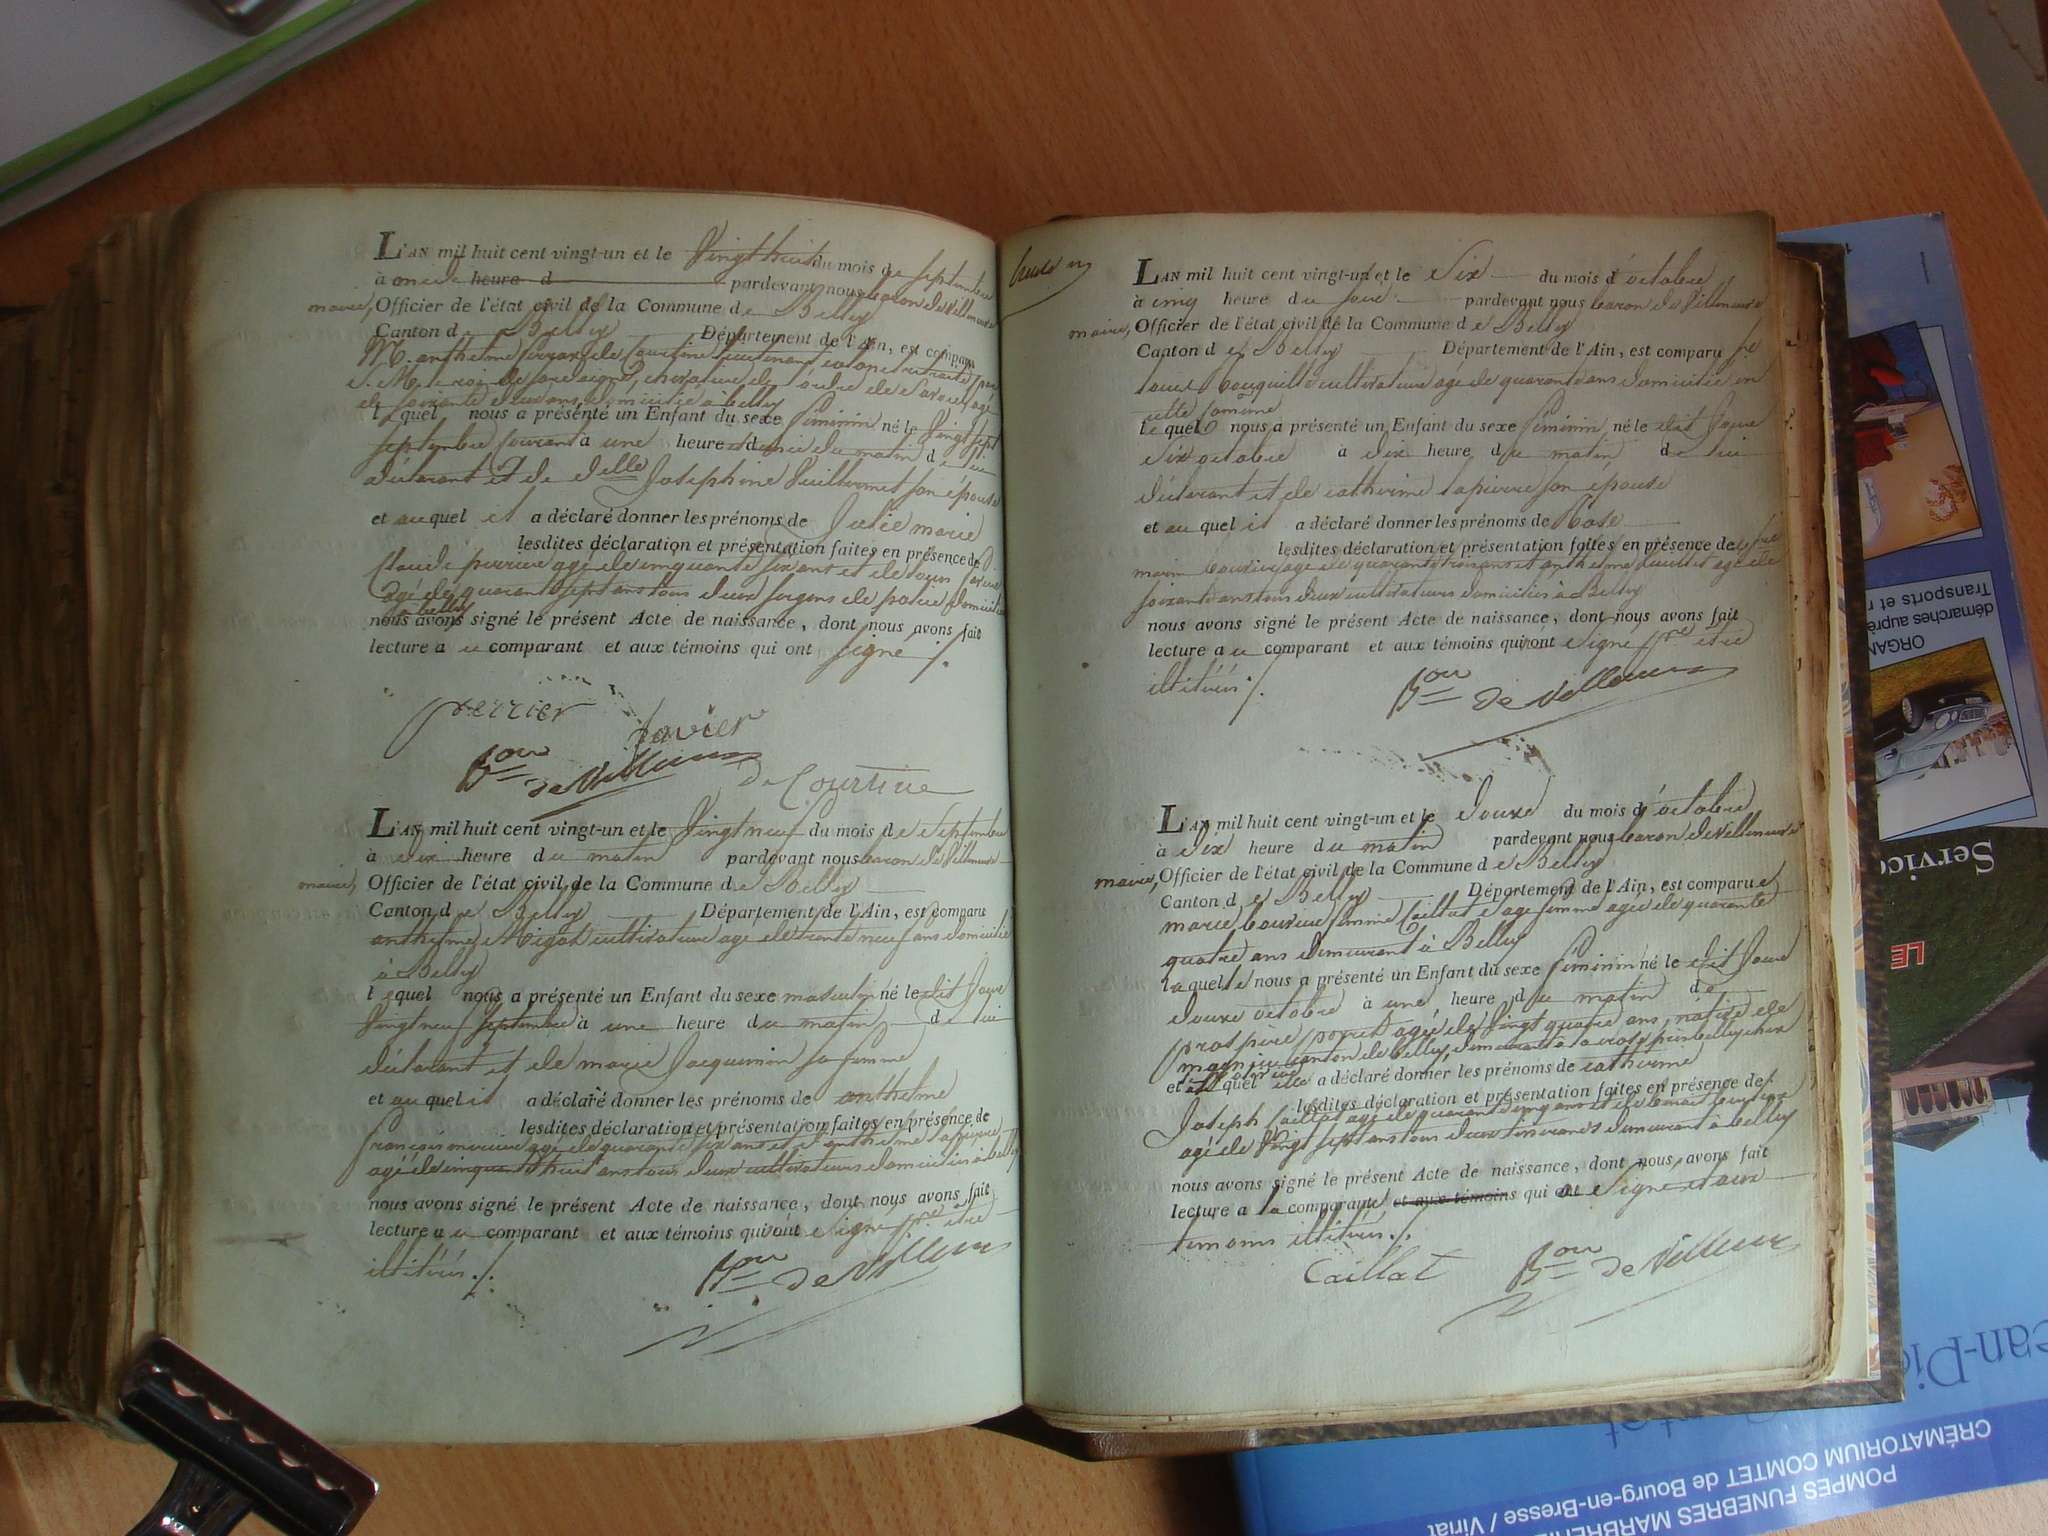 L'AN mil huit cent vingt-un et le Vingt huit du mois de septembre
à onze heure d pardevant nous baron de Villeneuve
maire, Officier de l'état civil de la Commune de Belley
Canton de Belley Département de l'Ain, est comparu
M. anthelme de Courtine lieutenant colonel retraité
S. M. le roi de sardaigne, chevalier de l'ordre de agé
de soixante deux ans domicilié à belley
lequel nous a présenté un Enfant du sexe féminin né le Vingt sept
septembre courant à une heure et demie du matin de lui
déclarant et de delle Josephine Vuillermet son épouse
et auquel il a déclaré donner les prénoms de Julie marie
lesdites déclaration et présentation faites en présence de
Claude perrier agé de cinquante six ans et de
agé de quarante sept ans tous deux sergens de police domiciliés
à belley
nous avons signé le présent Acte de naissance, dont nous avons fait
lecture au comparant et aux témoins qui ont signé /.
perrier
favier
Bon de Villeneuve
De Courtine
L'AN mil huit cent vingt-un et le Vingt neuf du mois de Septembre
à dix heure du matin pardevant nous baron de Villeneuve
maire, Officier de l'état civil de la Commune de Belley
Canton de Belley Département de l'Ain, est comparu
anthelme Migat cultivateur agé de trente neuf ans domicilié
à Belley
lequel nous a présenté un Enfant du sexe masculin né le dit Jour
Vingt neuf septembre à une heure du matin de lui
déclarant et de marie Jacquemin sa femme
et auquel il a déclaré donner les prénoms de anthelme
lesdites déclaration et présentation faites en présence de
françois mercier agé de quarante six ans et d'anthelme lapierre
agé de cinquante huit ans tous deux cultivateurs domiciliés à belley
nous avons signé le présent Acte de naissance, dont nous avons fait
lecture au comparant et aux témoins qui ont
illitérés ./.
Bon de Villeneuve
L'AN mil huit cent vingt-un et le Six du mois d'octobre
à cinq heure du soir pardevant nous baron de Villeneuve
maire, Officier de l'état civil de la Commune de Belley
Canton de Belley Département de l'Ain, est comparu
louis cultivateur agé de quarante ans domicilié en
cette comune
lequel nous a présenté un Enfant du sexe féminin né le dit Jour
Six octobre à dix heure du matin de lui
déclarant et de catherine lapierre son épouse
et auquel il a déclaré donner les prénoms de Rose
lesdites déclaration et présentation faites en présence de
agé de quarante trois ans et anthelme agé de
soixante ans tous deux cultivateurs domiciliés à Belley
nous avons signé le présent Acte de naissance, dont nous avons fait
lecture au comparant et aux témoins qui ont
illitérés ./.
Bon de Villeneuve
L'AN mil huit cent vingt-un et le Douze du mois d'octobre
à dix heure du matin pardevant nous baron de Villeneuve
maire, Officier de l'état civil de la Commune de Belley
Canton de Belley Département de l'Ain, est comparue
marie femme Caillat sage femme agée de quarante
quatre ans demeurant à Belley
laquelle nous a présenté un Enfant du sexe féminin né le dit Jour
Douze octobre à une heure du matin de
prospère agée de Vingt quatre ans, native de
canton de belley, demeurant à
et auquel elle a déclaré donner les prénoms de catherine
lesdites déclaration et présentation faites en présence de
Joseph Caillat agé de quarante cinq ans et de
agé de Vingt sept ans tous deux demeurant à belley
nous avons signé le présent Acte de naissance, dont nous avons fait
lecture a la comparante et aux témoins qui a Signé et aux
temoins illitérés ./.
Caillat
Bon de Villeneuve
démarches auprè
Transports et
ORGAN
Service
LE
POMPES FUNEBRES MARBRERIE
CRÉMATORIUM COMTET de Bourg-en-Bresse / Viriat